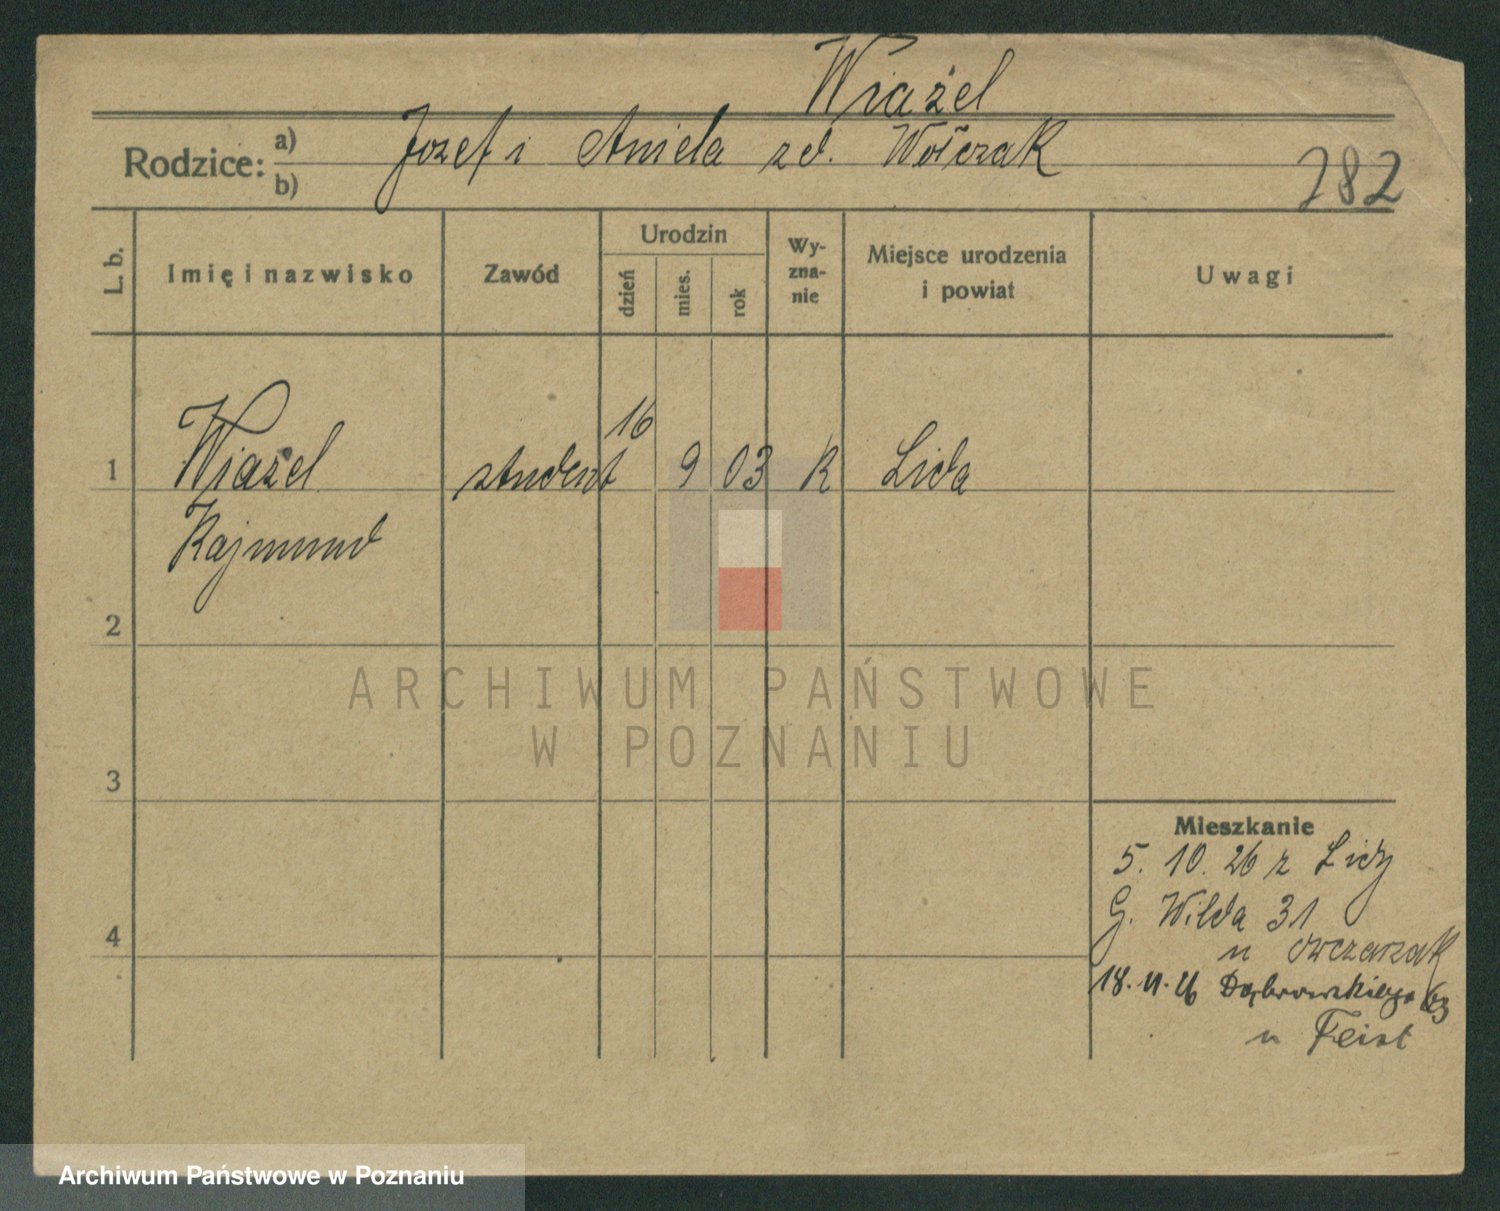 Wiażel
Rodzice: a) Jozef i Aniela zd. Wołczak
b)
282
L. b.
Imię i nazwisko
Zawód
Urodzin
dzień
mies.
rok
Wy-
zna-
nie
Miejsce urodzenia
i powiat
Uwagi
1 Wiażel student 16 9 03 R Lida
Rajmund
2
3
4
Mieszkanie
5. 10. 26 z Lidy
G. Wilda 31
u Owczarzak
18. 11. 26 Dąbrowskiego
u Feist
ARCHIWUM PAŃSTWOWE
W POZNANIU
Archiwum Państwowe w Poznaniu